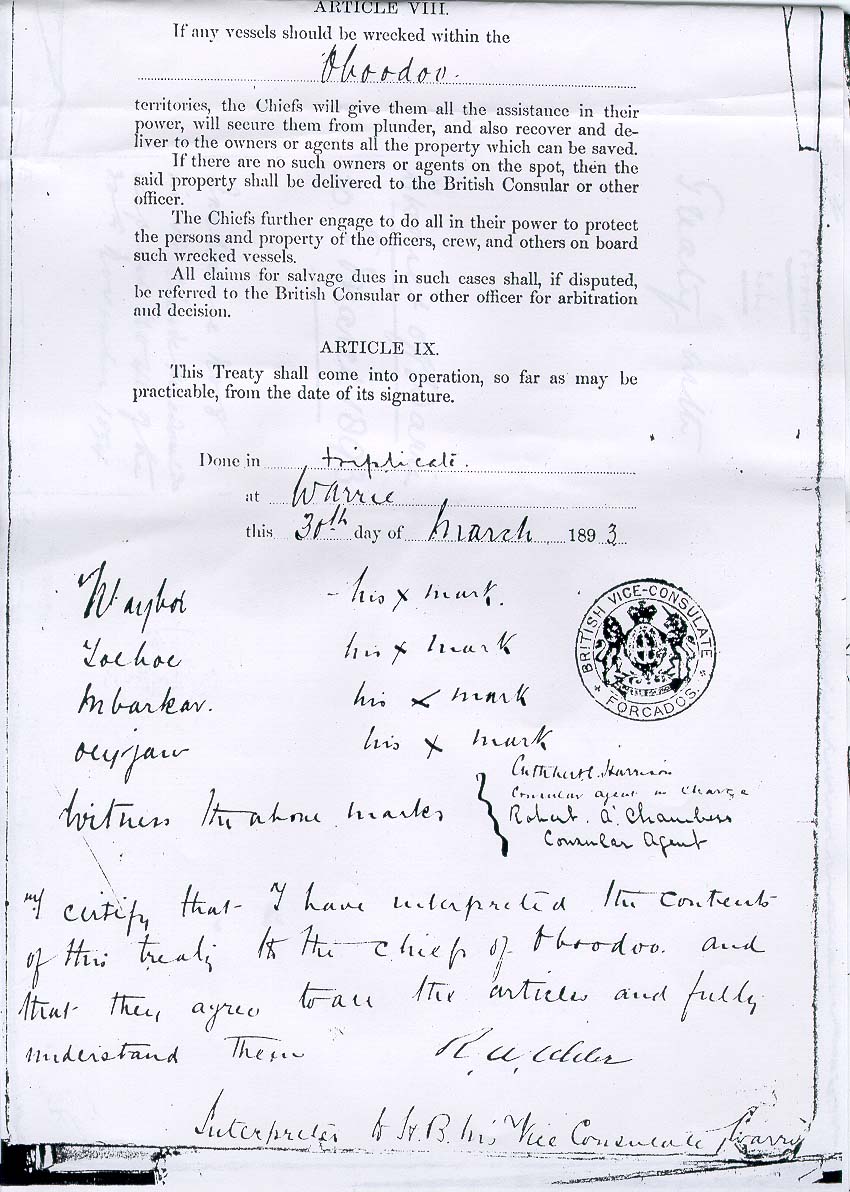 ARTICLE VIII.
If any vessels should be wrecked within the
Oboodoo.
territories, the Chiefs will give them all the assistance in their
power, will secure them from plunder, and also recover and de-
liver to the owners or agents all the property which can be saved.
If there are no such owners or agents on the spot, then the
said property shall be delivered to the British Consular or other
officer.
The Chiefs further engage to do all in their power to protect
the persons and property of the officers, crew, and others on board
such wrecked vessels.
All claims for salvage dues in such cases shall, if disputed,
be referred to the British Consular or other officer for arbitration
and decision.
ARTICLE IX.
This Treaty shall come into operation, so far as may be
practicable, from the date of its signature.
Done in triplicate.
at Warrie
this 30th day of March 1893
his x mark.
his x mark
Mbarkar. his x mark
his x mark
BRITISH VICE-CONSULATE
FORCADOS
Cuthbert C. Harrison
Consular agent in Charge
Witness the above marks
Robert A. Chambers
Consular Agent
I certify that I have interpreted the contents
of this treaty to the chiefs of Oboodoo. and
that they agree to all the articles and fully
understand them
Interpreter to H.B. Vice Consulate, Warri